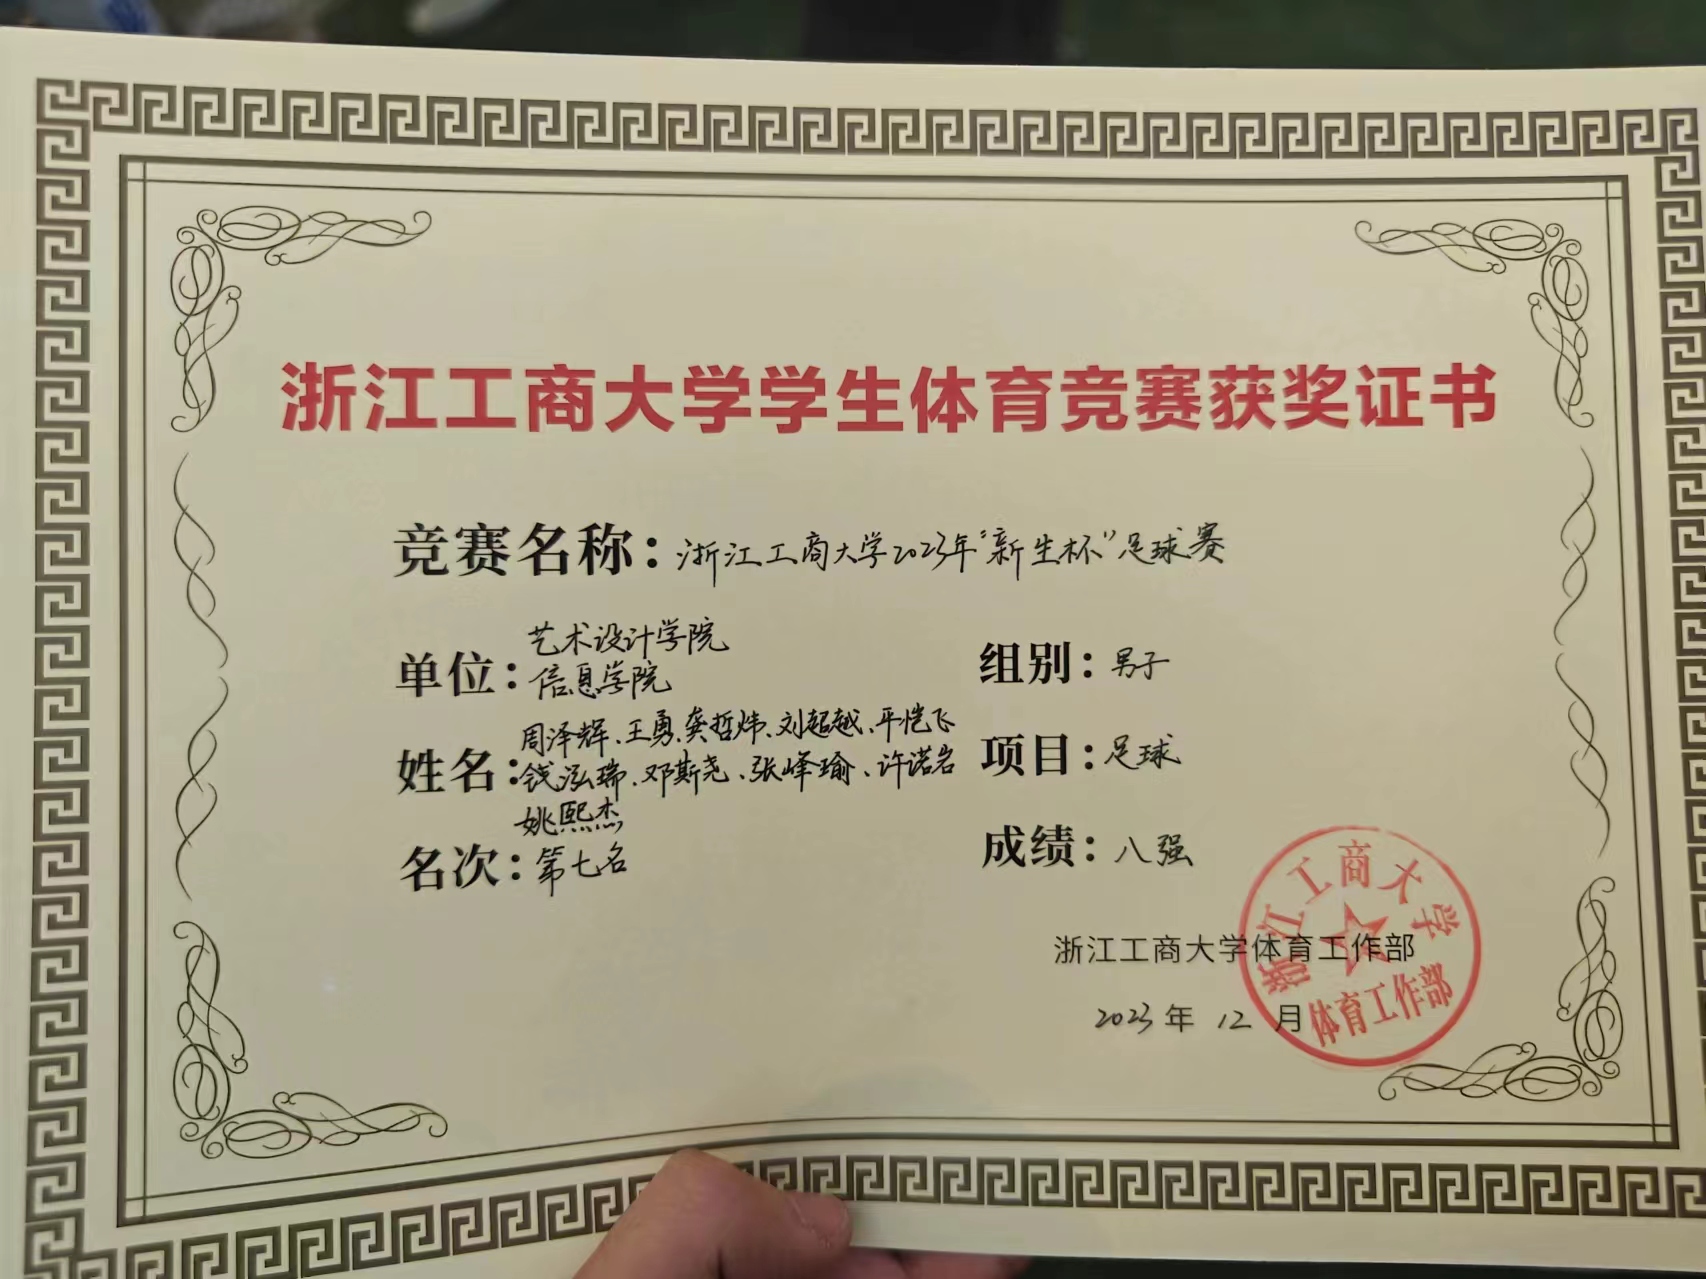 浙江工商大学学生体育竞赛获奖证书
竞赛名称：浙江工商大学2023年“新生杯”足球赛
单位：艺术设计学院
信息学院
组别：男子
姓名：周泽辉、王勇、龚哲炜、刘超越、平恺飞
钱泓瑞、邓斯尧、张峰瑜、许诺岩
姚熙杰
项目：足球
名次：第七名
成绩：八强
浙江工商大学体育工作部
2023年 12 月
浙江工商大学
体育工作部